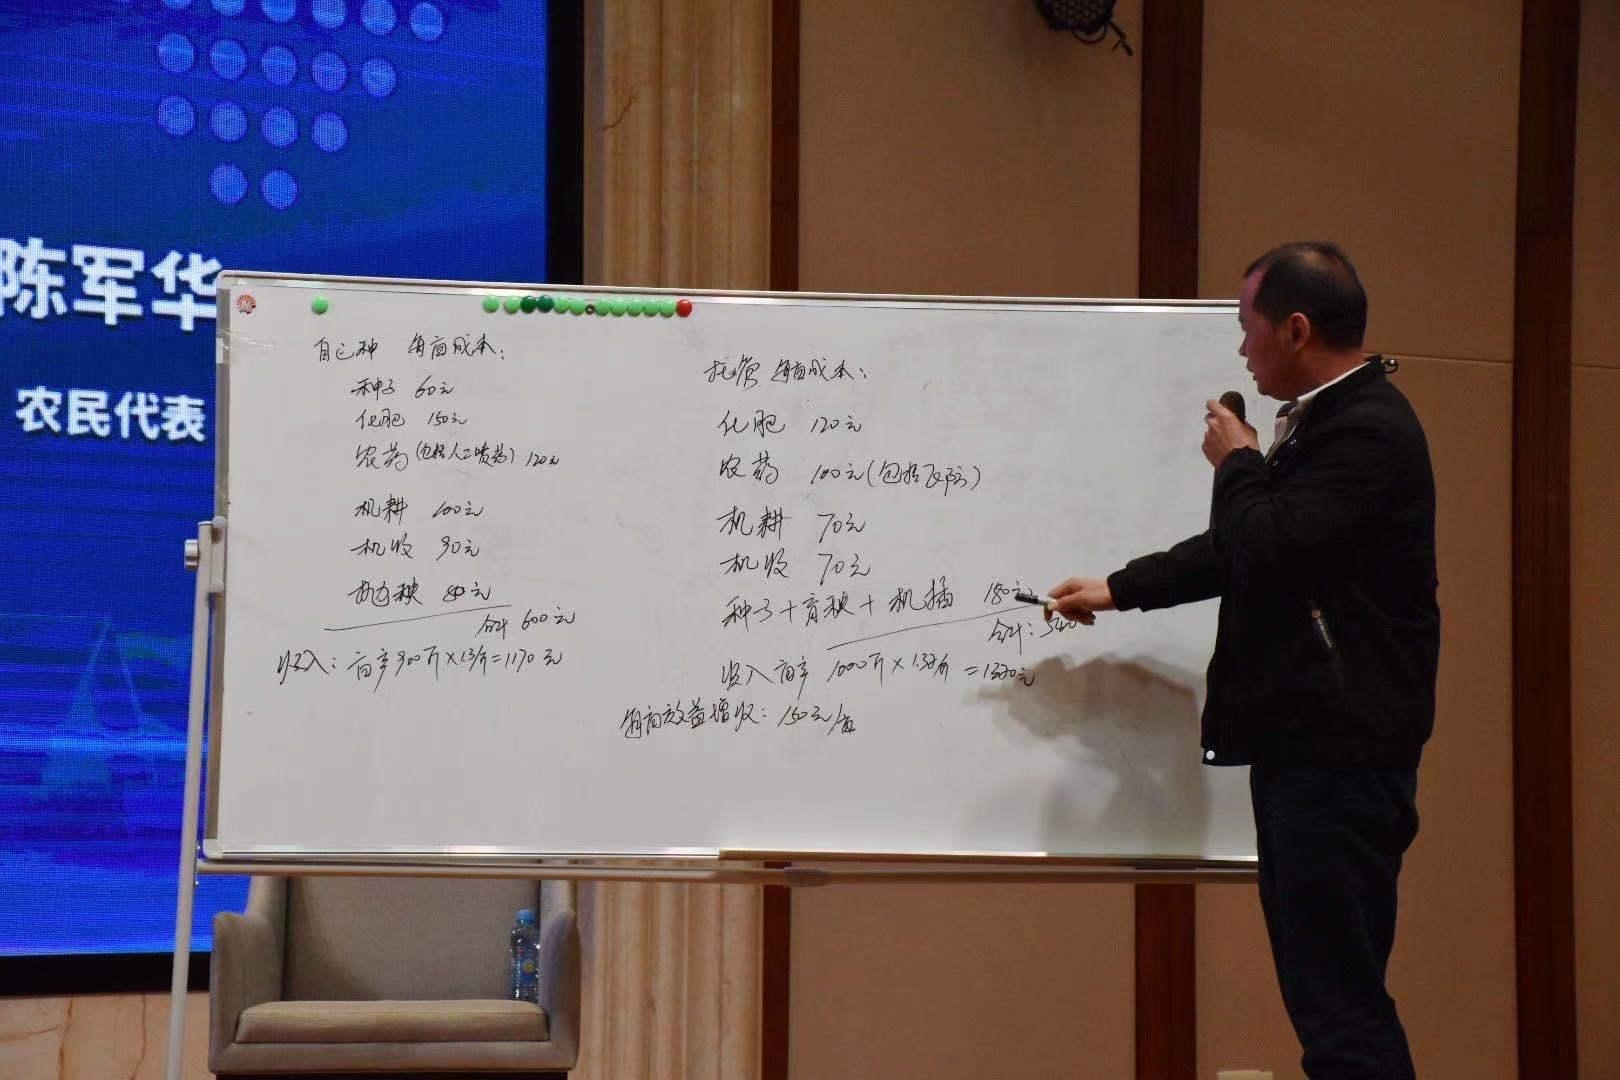 陈军华
农民代表
自己种 每亩成本:
种子 60元
化肥 150元
农药(包括人工喷药) 120元
机耕 100元
机收 90元
抛秧 80元
合计 600元
收入: 亩产900斤×1.3/斤=1170元
托管 每亩成本:
化肥 120元
农药 100元(包括飞防)
机耕 70元
机收 70元
种子+育秧+机插 180元
合计: 540
收入 亩产 1000斤×1.32/斤=1320元
每亩效益增收: 150元/亩